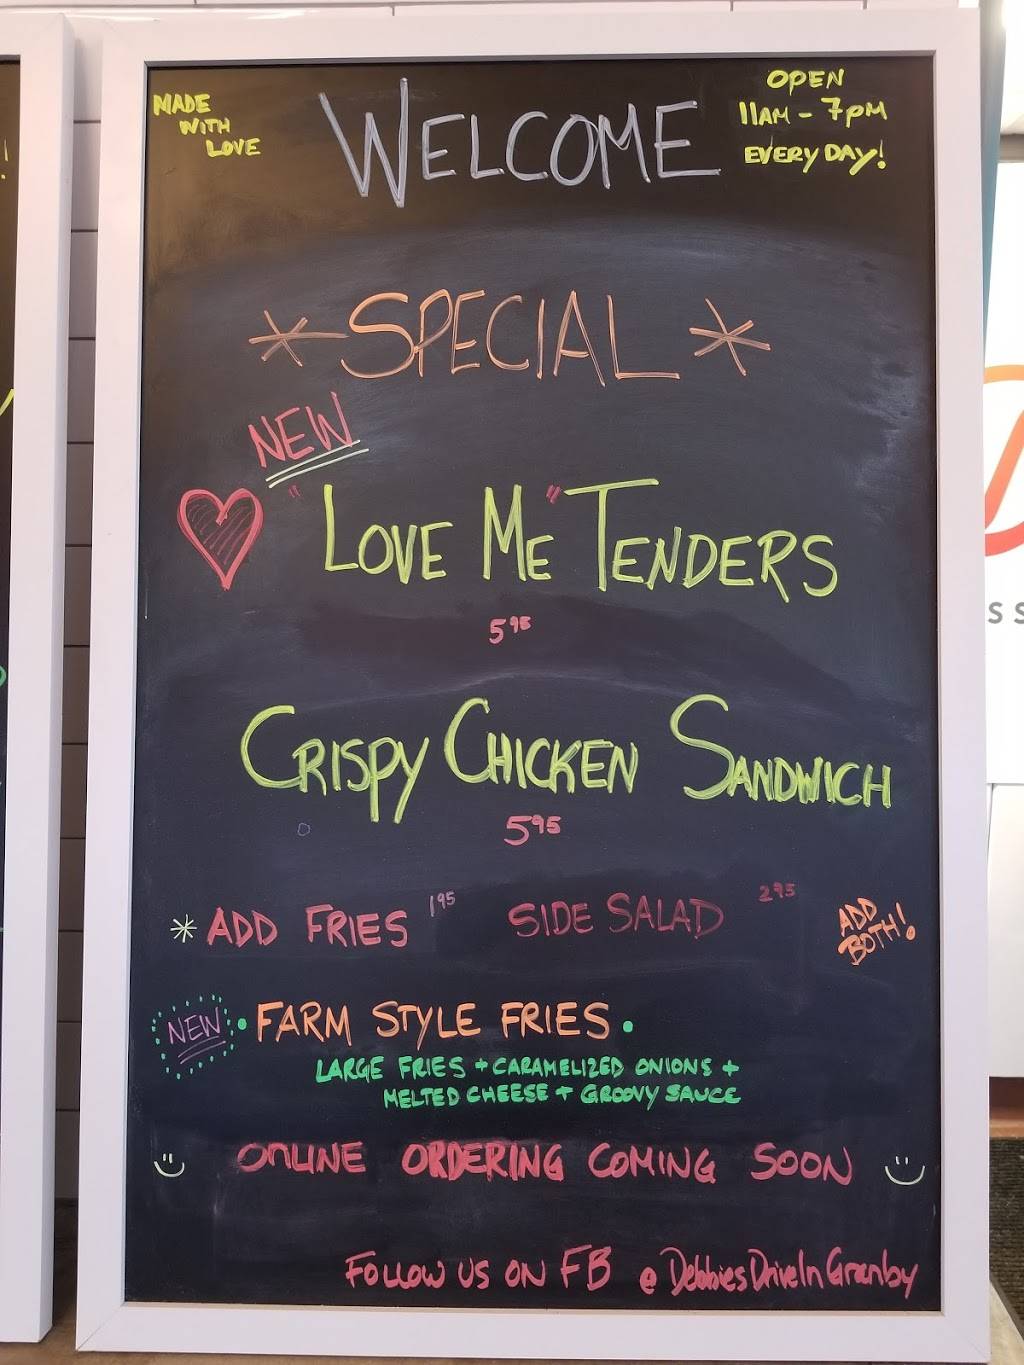 MADE
WITH
LOVE
WELCOME
OPEN
11AM - 7PM
EVERY DAY!
* SPECIAL *
NEW
"LOVE ME" TENDERS
5.95
CRISPY CHICKEN SANDWICH
5.95
* ADD FRIES 1.95 SIDE SALAD 2.95
ADD
BOTH!
NEW • FARM STYLE FRIES •
LARGE FRIES + CARAMELIZED ONIONS +
MELTED CHEESE + GROOVY SAUCE
ONLINE ORDERING COMING SOON
FOLLOW US ON FB @DebbiesDriveInGranby